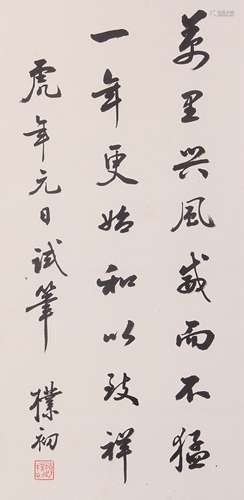 万里兴风威而不猛
一年更始和以致祥
虎年元日试笔
朴初